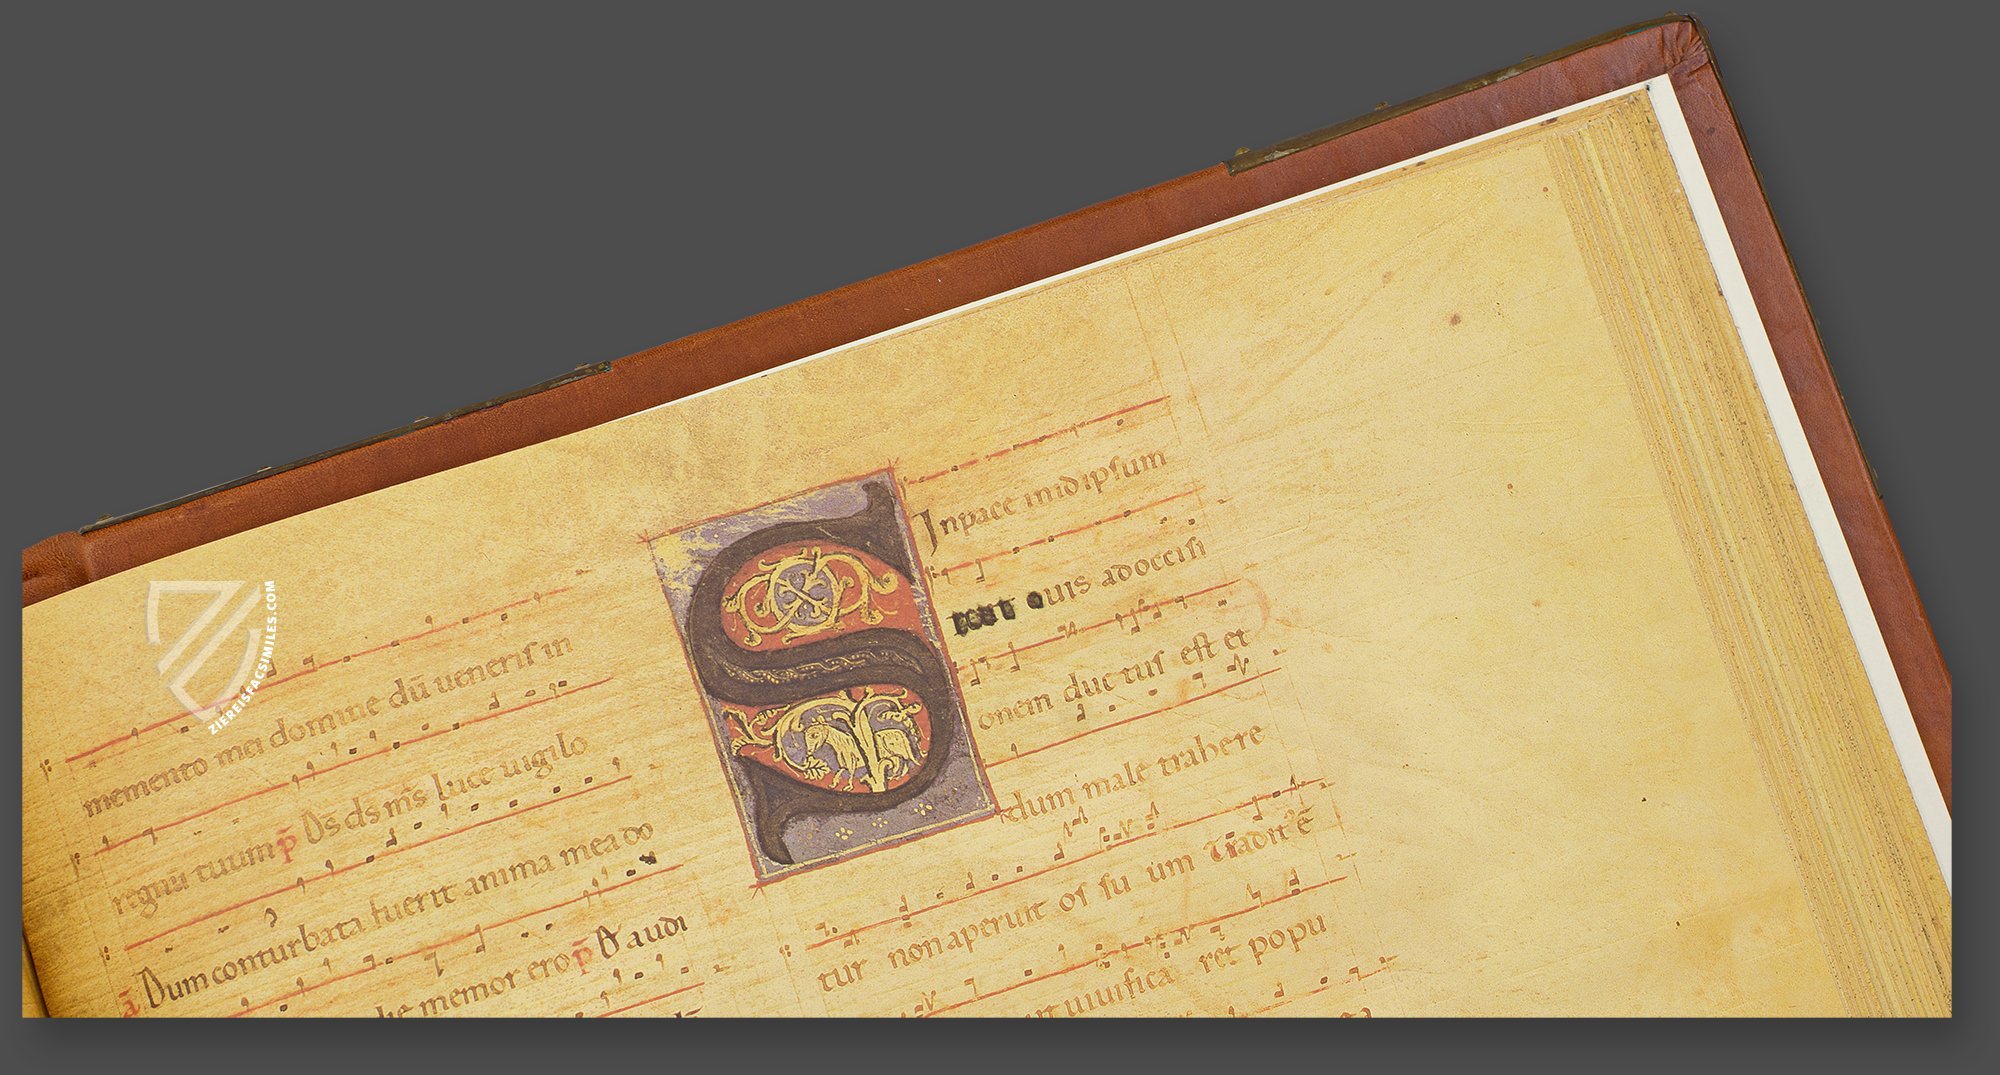 memento mei domine dū ueneris in
regnū tuum p̄ Ds ds m̄s luce uigilo
ā Dum conturbata fuerit anima mea do
memor ero p̄ D audi
S
Inpace inidipsum
quis adoccisi
onem ductus est et
dum male trahere
tur non aperuit os su um Tradit ē
uiuifica ret popu
ZIEREISFACSIMILES.COM